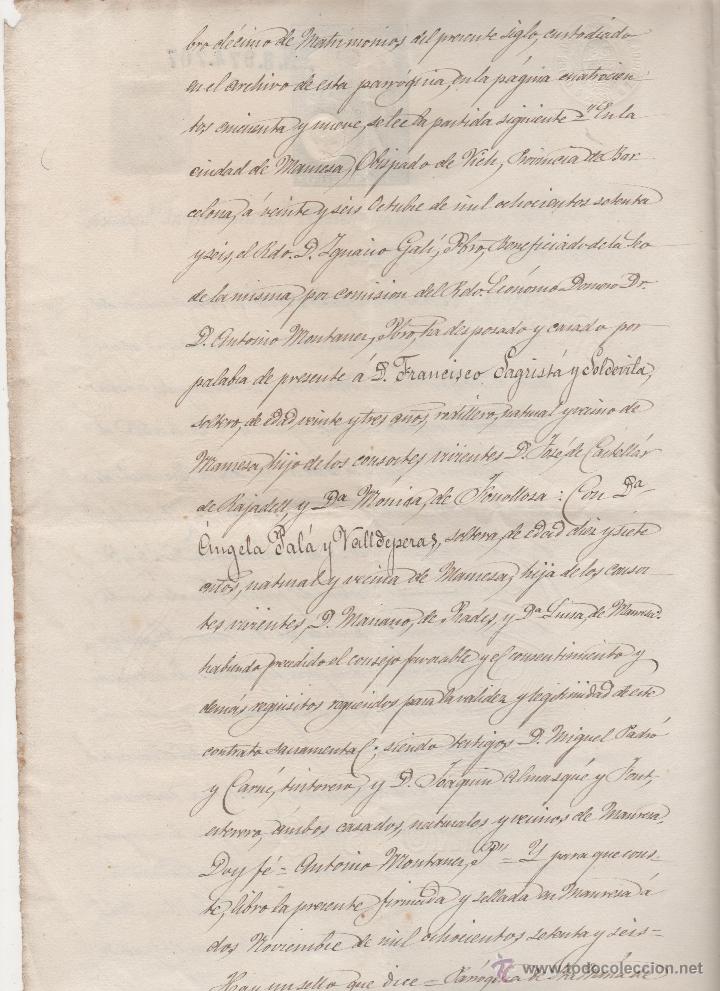 bro décimo de Matrimonios del presente siglo, custodiado
en el archivo de esta parróquia, en la página cuatrocien-
tos cincuenta y nueve, se lee la partida siguiente = "En la
ciudad de Manresa, Obispado de Vich, Provincia de Bar-
celona, á veinte y séis Octubre de mil ochocientos setenta
y seis, el Rdo. D. Ignacio Galí, Pbro, Beneficiado de la Seo
de la misma, por comision del Rdo. Ecónomo Domero Dr.
D. Antonio Montaner, Pbro, ha desposado y casado por
palabra de presente á D. Francisco Sagristá y Soldevila,
soltero, de edad veinte y tres años, natural y vecino de
Manresa, hijo de los consortes vivientes D. José, de Castellár
de Rajadell, y Dª Mónica, de Fonollosa: Con Dª
Ángela Palá y Valldeperas, soltera, de edad diez y siete
años, natural y vecina de Manresa, hija de los consor-
tes vivientes, D. Mariano, de Prades, y Dª Luisa, de Manresa:
habiendo precedido el consejo favorable y el consentimiento y
demás requisitos requeridos para la validez y legitimidad de este
contrato sacramental; siendo testigos D. Miguel Padró
y Carné, tintorero, y D. Joaquin Almasqué y Font,
ámbos casados, naturales y vecinos de Manresa.
Doy fé = Antonio Montaner, Pbro = Y para que cons-
te, libro la presente firmada y sellada en Manresa á
dos Noviembre de mil ochocientos setenta y séis =
Hay un sello que dice = Parróquia de de
www.todocoleccion.net